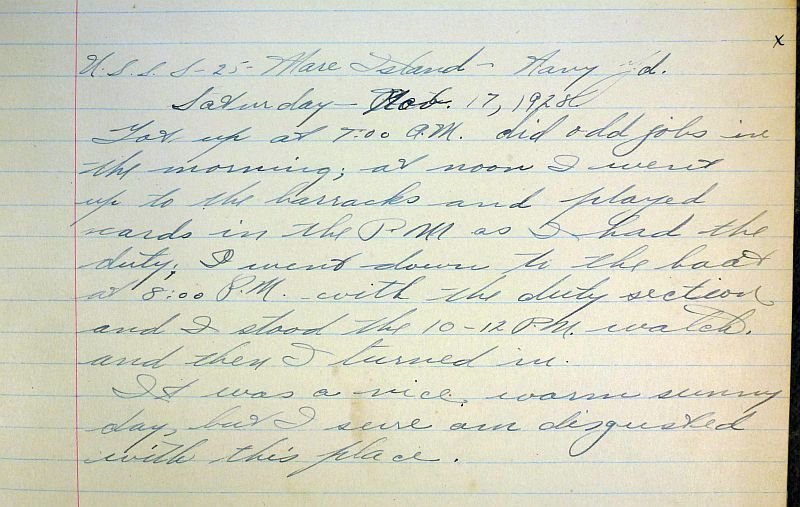 x
U.S.S. S-25- Mare Island- Navy Yd.
Saturday- Nov. 17, 1928
Got up at 7:00 A.M. did odd jobs in
the morning; at noon I went
up to the barracks and played
cards in the P M as I had the
duty; I went down to the boat
at 8:00 P.M. with the duty section
and I stood the 10-12 P.M. watch.
and then I turned in.
It was a nice, warm sunny
day, but I sure am disgusted
with this place.